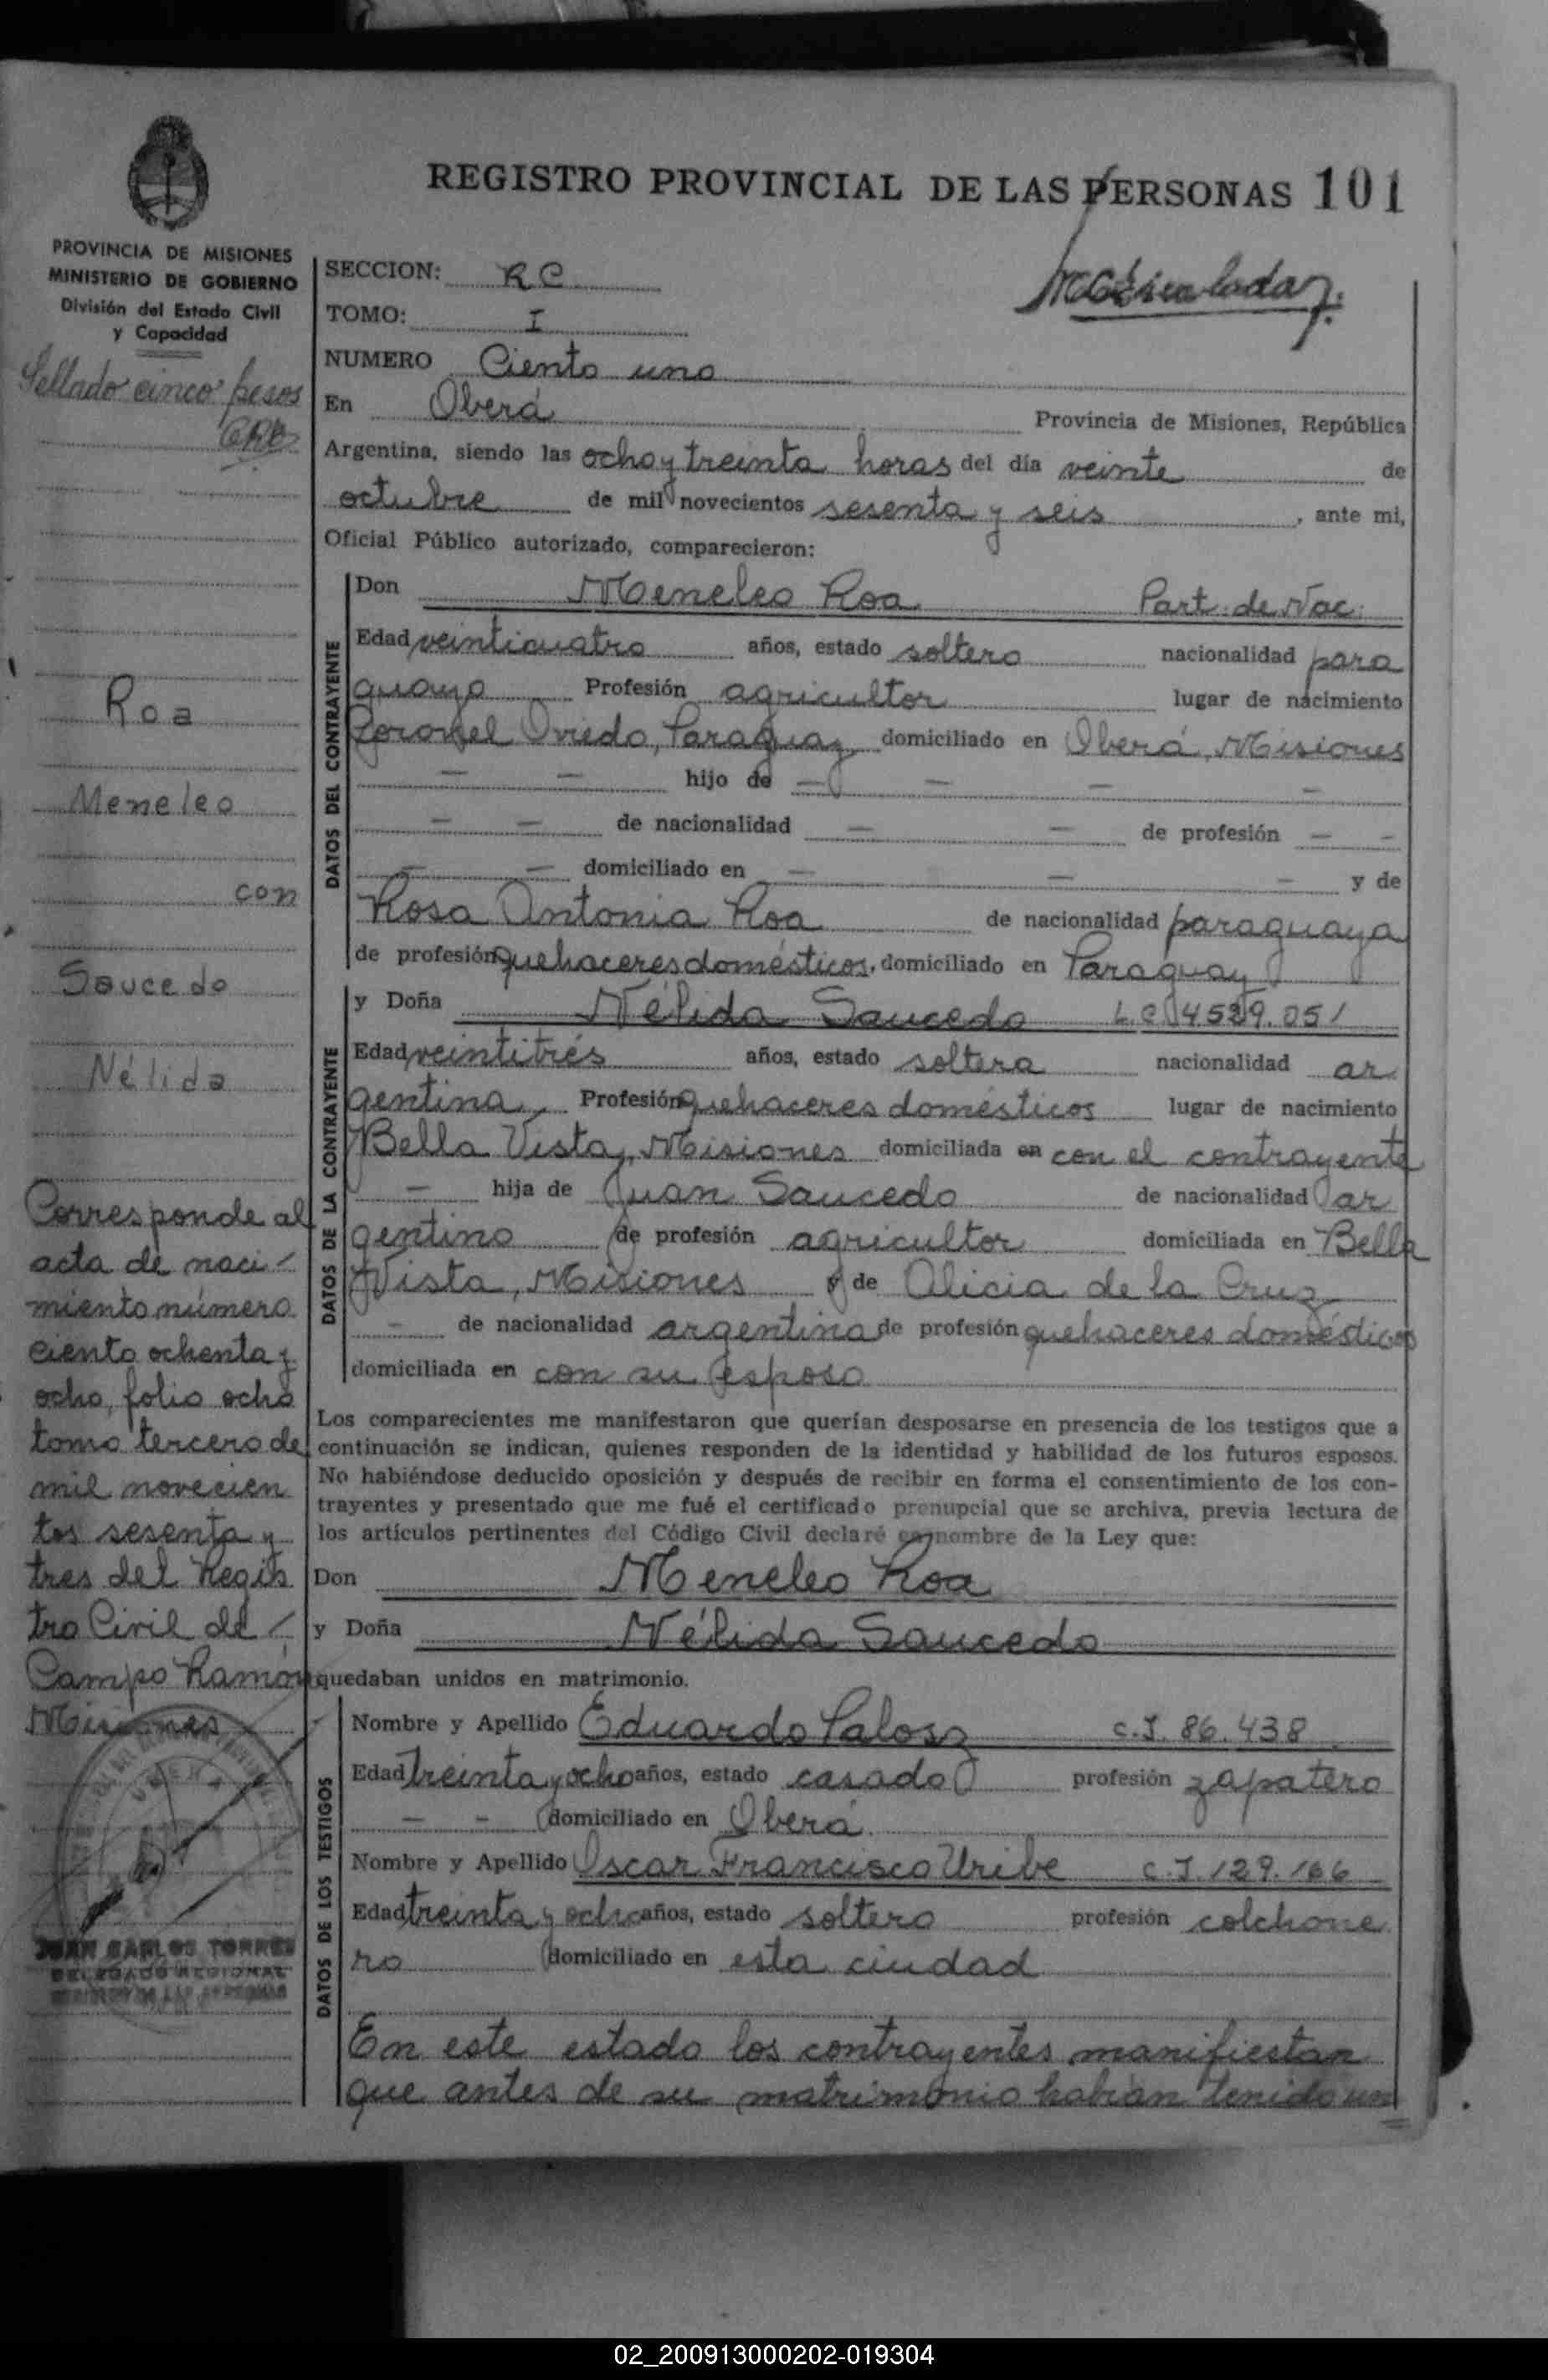 REGISTRO PROVINCIAL DE LAS PERSONAS 101
PROVINCIA DE MISIONES
MINISTERIO DE GOBIERNO
División del Estado Civil
y Capacidad
Sellado cinco pesos
Roa
Meneleo
con
Saucedo
Nélida
Corresponde al
acta de naci-
miento número
ciento ochenta y
ocho, folio ocho
tomo tercero de
mil novecien
tos sesenta y
tres del Regis
tro Civil de
Campo Ramón
Misiones
JUAN CARLOS TORRES
DELEGADO REGIONAL
SECCION: RC
TOMO: I
NUMERO Ciento uno
En Oberá Provincia de Misiones, República
Argentina, siendo las ocho y treinta horas del día veinte de
octubre de mil novecientos sesenta y seis, ante mi,
Oficial Público autorizado, comparecieron:
DATOS DEL CONTRAYENTE
Don Meneleo Roa Part. de Nac.
Edad veinticuatro años, estado soltero nacionalidad para
guayo Profesión agricultor lugar de nacimiento
Coronel Oviedo, Paraguay domiciliado en Oberá, Misiones
- - hijo de - - - -
- - de nacionalidad - - de profesión - -
- - domiciliado en - - - y de
Rosa Antonia Roa de nacionalidad paraguaya
de profesión quehaceres domésticos, domiciliado en Paraguay
DATOS DE LA CONTRAYENTE
y Doña Nélida Saucedo L.C. 4529.051
Edad veintitrés años, estado soltera nacionalidad ar
gentina, Profesión quehaceres domésticos lugar de nacimiento
Bella Vista, Misiones domiciliada en con el contrayente
- hija de Juan Saucedo de nacionalidad ar
gentino de profesión agricultor domiciliada en Bella
Vista, Misiones y de Alicia de la Cruz
- de nacionalidad argentina de profesión quehaceres domésticos
domiciliada en con su esposo
Los comparecientes me manifestaron que querían desposarse en presencia de los testigos que a
continuación se indican, quienes responden de la identidad y habilidad de los futuros esposos.
No habiéndose deducido oposición y después de recibir en forma el consentimiento de los con-
trayentes y presentado que me fué el certificado prenupcial que se archiva, previa lectura de
los artículos pertinentes del Código Civil declaré en nombre de la Ley que:
Don Meneleo Roa
y Doña Nélida Saucedo
quedaban unidos en matrimonio.
DATOS DE LOS TESTIGOS
Nombre y Apellido Eduardo Palosz C.I. 86.438
Edad treinta y ocho años, estado casado profesión zapatero
- - domiciliado en Oberá
Nombre y Apellido Oscar Francisco Uribe C.I. 129.166
Edad treinta y ocho años, estado soltero profesión colchone
ro domiciliado en esta ciudad
En este estado los contrayentes manifiestan
que antes de su matrimonio habían tenido un
02_200913000202-019304